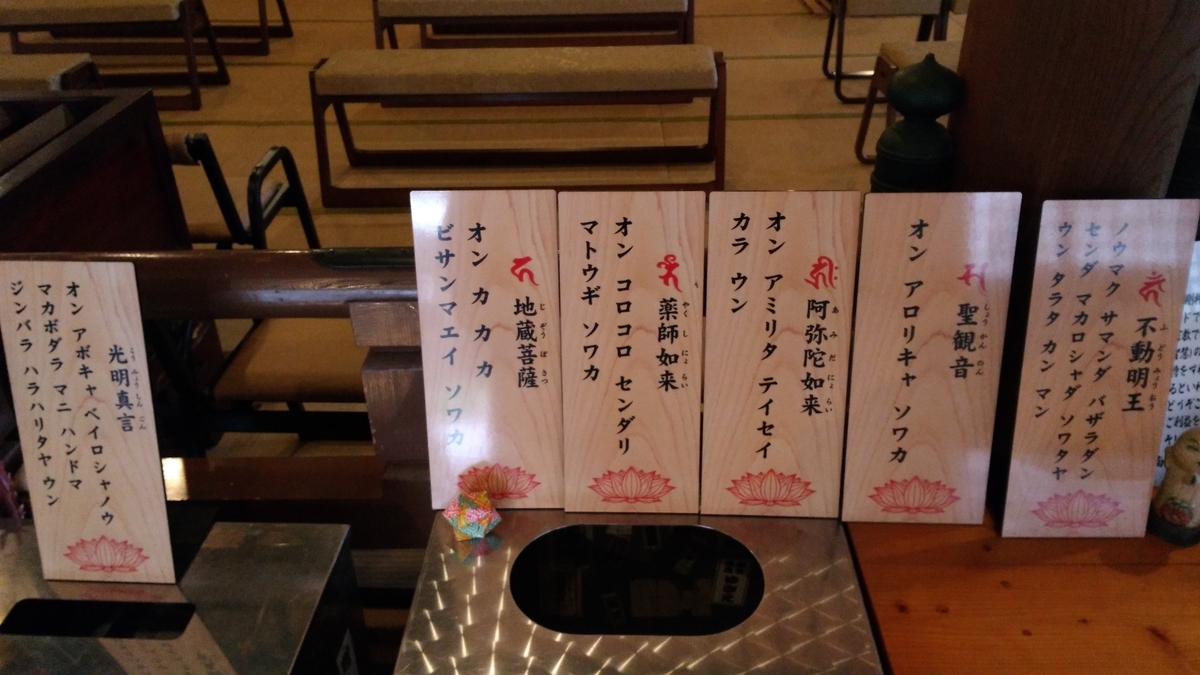 不動明王
ふどうみょうおう
ノウマク サマンダ バザラダン
センダ マカロシャダ ソワタヤ
ウン タラタ カン マン
聖観音
しょうかんのん
オン アロリキャ ソワカ
阿弥陀如来
あみだにょらい
オン アミリタ テイセイ
カラ ウン
薬師如来
やくしにょらい
オン コロコロ センダリ
マトウギ ソワカ
地蔵菩薩
じぞうぼさつ
オン カカカ
ビサンマエイ ソワカ
光明真言
こうみょうしんごん
オン アボキャ ベイロシャノウ
マカボダラ マニ ハンドマ
ジンバラ ハラハリタヤ ウン